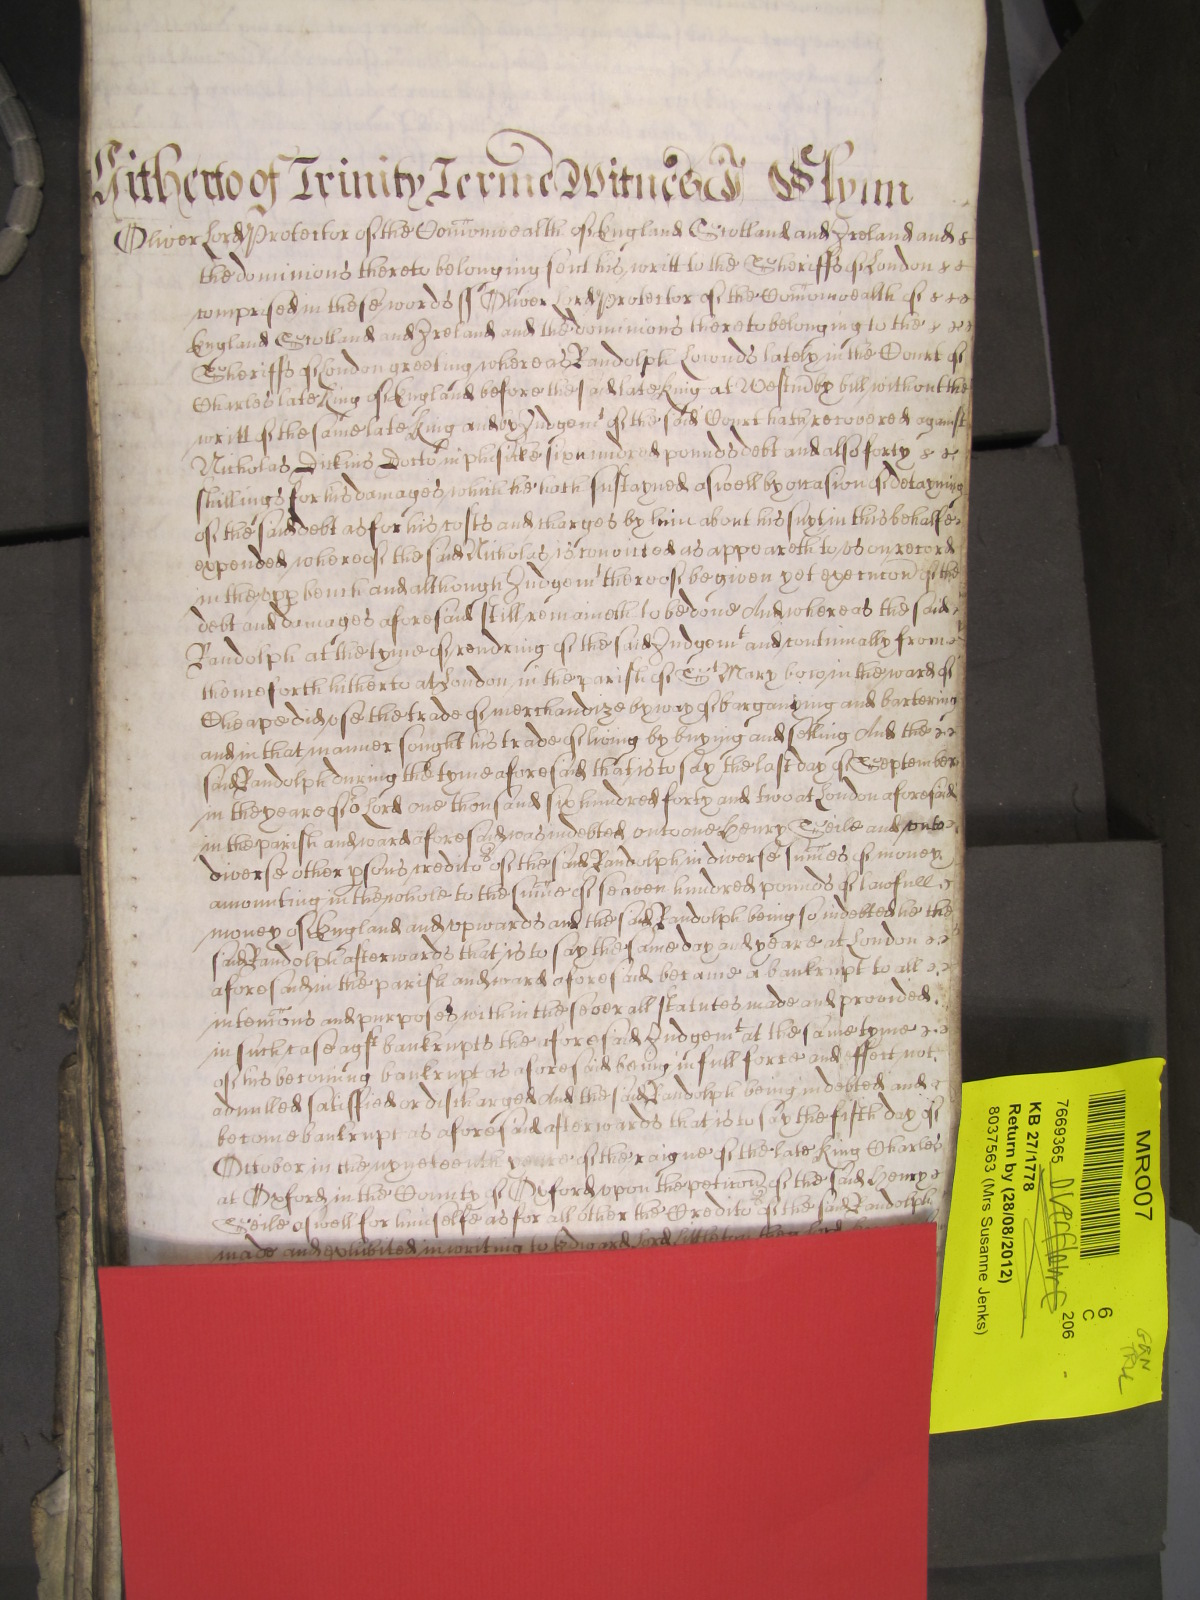 Hitherto of Trinity Terme Witnes J Glynn
Oliver Lord Protector of the Comonwealth of England Scotland and Ireland and &
the dominions thereto belonging sent his writt to the Sheriffs of London & &
comprised in these words ss Oliver Lord Protector of the Comonwealth of & & &
England Scotland and Ireland and the dominions thereto belonging to the
Sheriffs of London greeting whereas Randolph Lownds lately in the Court of
Charles late King of England before the said late King at Westm by bill without the
writt of the same late King and by Judgemt of the said Court hath recovered against
Nicholas Dickins Docto in phisicke six hundred pounds debt and also forty & &
shillings for his damages which he hath sustayned aswell by occasion of detayning
of the said debt as for his costs and charges by him about his suyt in this behalfe
expended whereof the said Nicholas is convicted as appeareth to us on record
in the upp bench and although Judgemt thereof be given yet execucon of the
debt and damages aforesaid still remaineth to be done And whereas the said
Randolph at the tyme of rendring of the said Judgemt and continually from
thenceforth hitherto at London in the parish of St Mary bow in the ward of
Cheape did use the trade of merchandize by way of bargayning and bartering
and in that manner sought his trade of living by buying and selling And the
said Randolph during the tyme aforesaid that is to say the last day of September
in the yeare of o Lord one thousand six hundred forty and two at London aforesaid
in the parish and ward aforesaid was indebted unto one Henry Seile and unto
diverse other psons credito of the said Randolph in diverse sumes of money
amounting in the whole to the sume of seaven hundred pounds of lawfull
money of England and upwards and the said Randolph being so indebted he the
said Randolph afterwards that is to say the same day and yeare at London
aforesaid in the parish and ward aforesaid became a bankrupt to all
intencons and purposes within the severall statutes made and provided
in such case agst bankrupts the aforesaid Judgemt at the same tyme
of his becoming bankrupt as aforesaid being in full force and effect not
adnulled satisffied or discharged And the said Randolph being indebted and
become bankrupt as aforesaid afterwards that is to say the fifth day of
October in the nyneteenth yeare of the raigne of the late King Charles
at Oxford in the County of Oxford upon the peticon of the said Henry
Seile aswell for himselfe as for all other the Credito of the said Randolph
made and exhibited in writing to Edward Lord Littleton then lord
MR007
7669365
KB 27/1778
Return by (28/08/2012)
8037563 (Mrs Susanne Jenks)
206
6
C